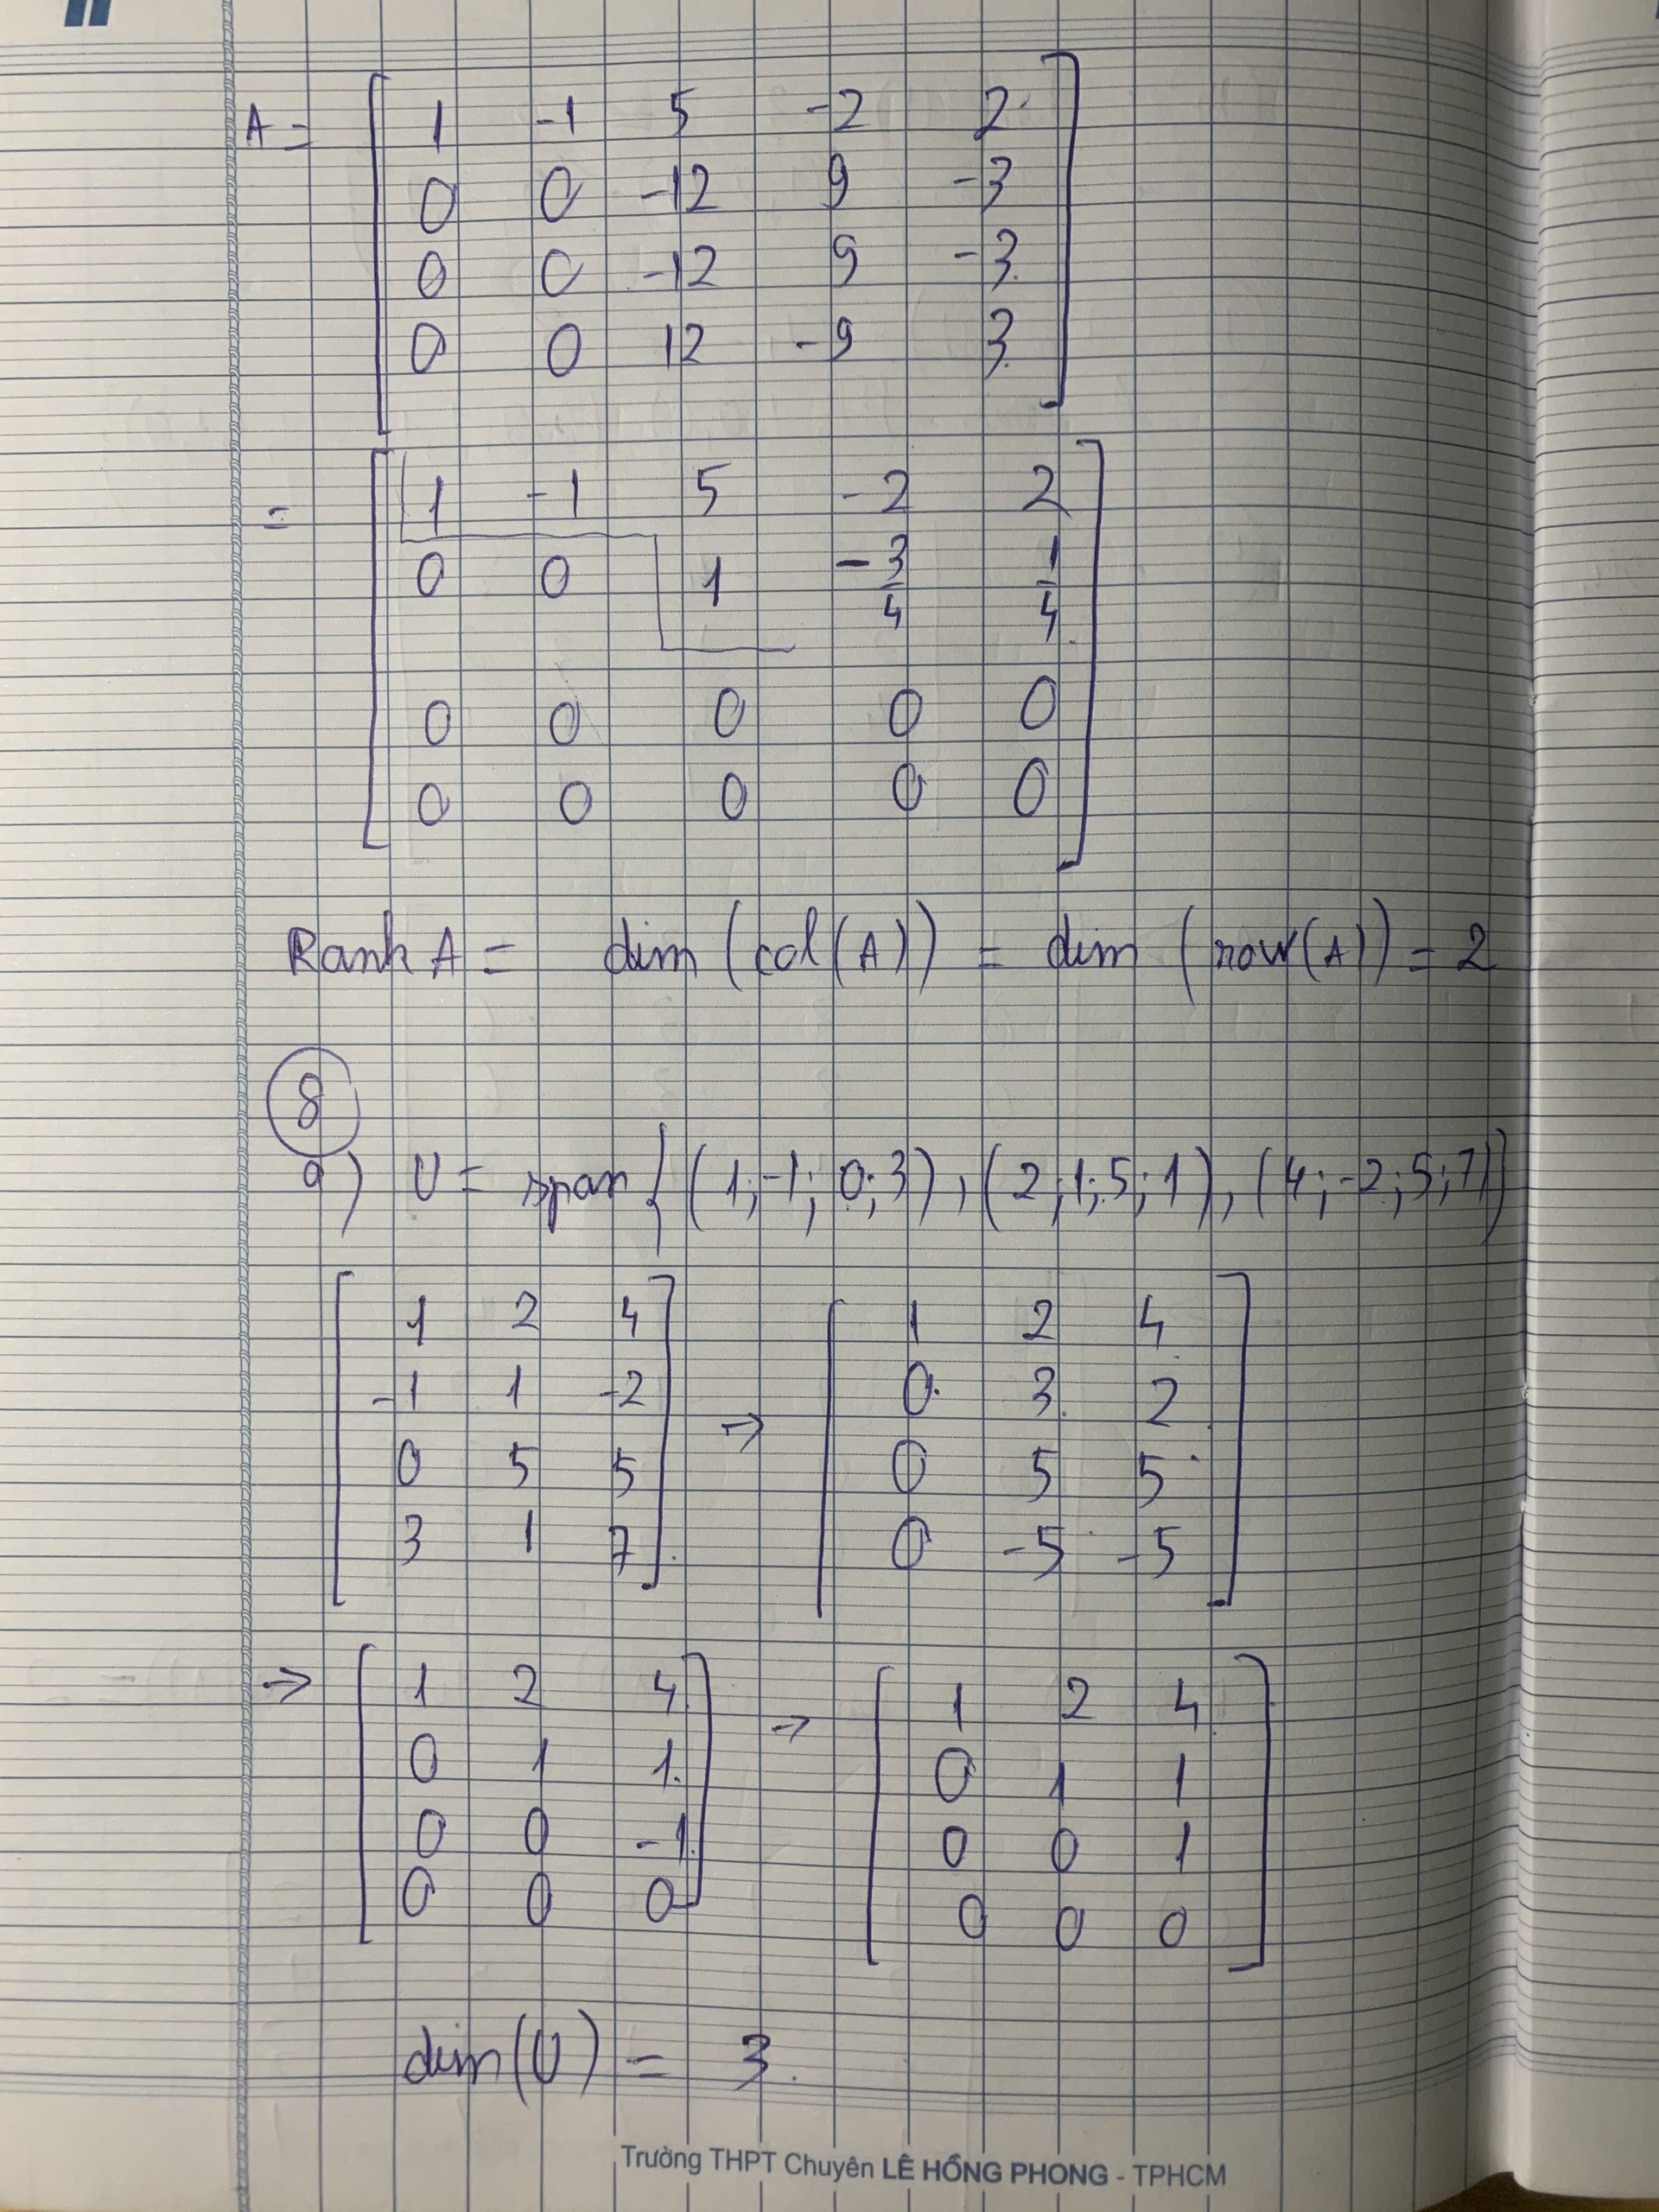 A = [ 1 -1 5 -2 2
0 0 -12 9 -3
0 0 -12 9 -3
0 0 12 -9 3 ]
= [ 1 -1 5 -2 2
0 0 1 -3/4 1/4
0 0 0 0 0
0 0 0 0 0 ]
Rank A = dim (col(A)) = dim (row(A)) = 2
8
a) U = span { (1;-1;0;3), (2;1;5;1), (4;-2;5;7) }
[ 1 2 4 → [ 1 2 4
-1 1 -2 0 3 2
0 5 5 0 5 5
3 1 7 ] 0 -5 -5 ]
→ [ 1 2 4 → [ 1 2 4
0 1 1 0 1 1
0 0 -1 0 0 1
0 0 0 ] 0 0 0 ]
dim(U) = 3.
Trường THPT Chuyên LÊ HỒNG PHONG - TPHCM